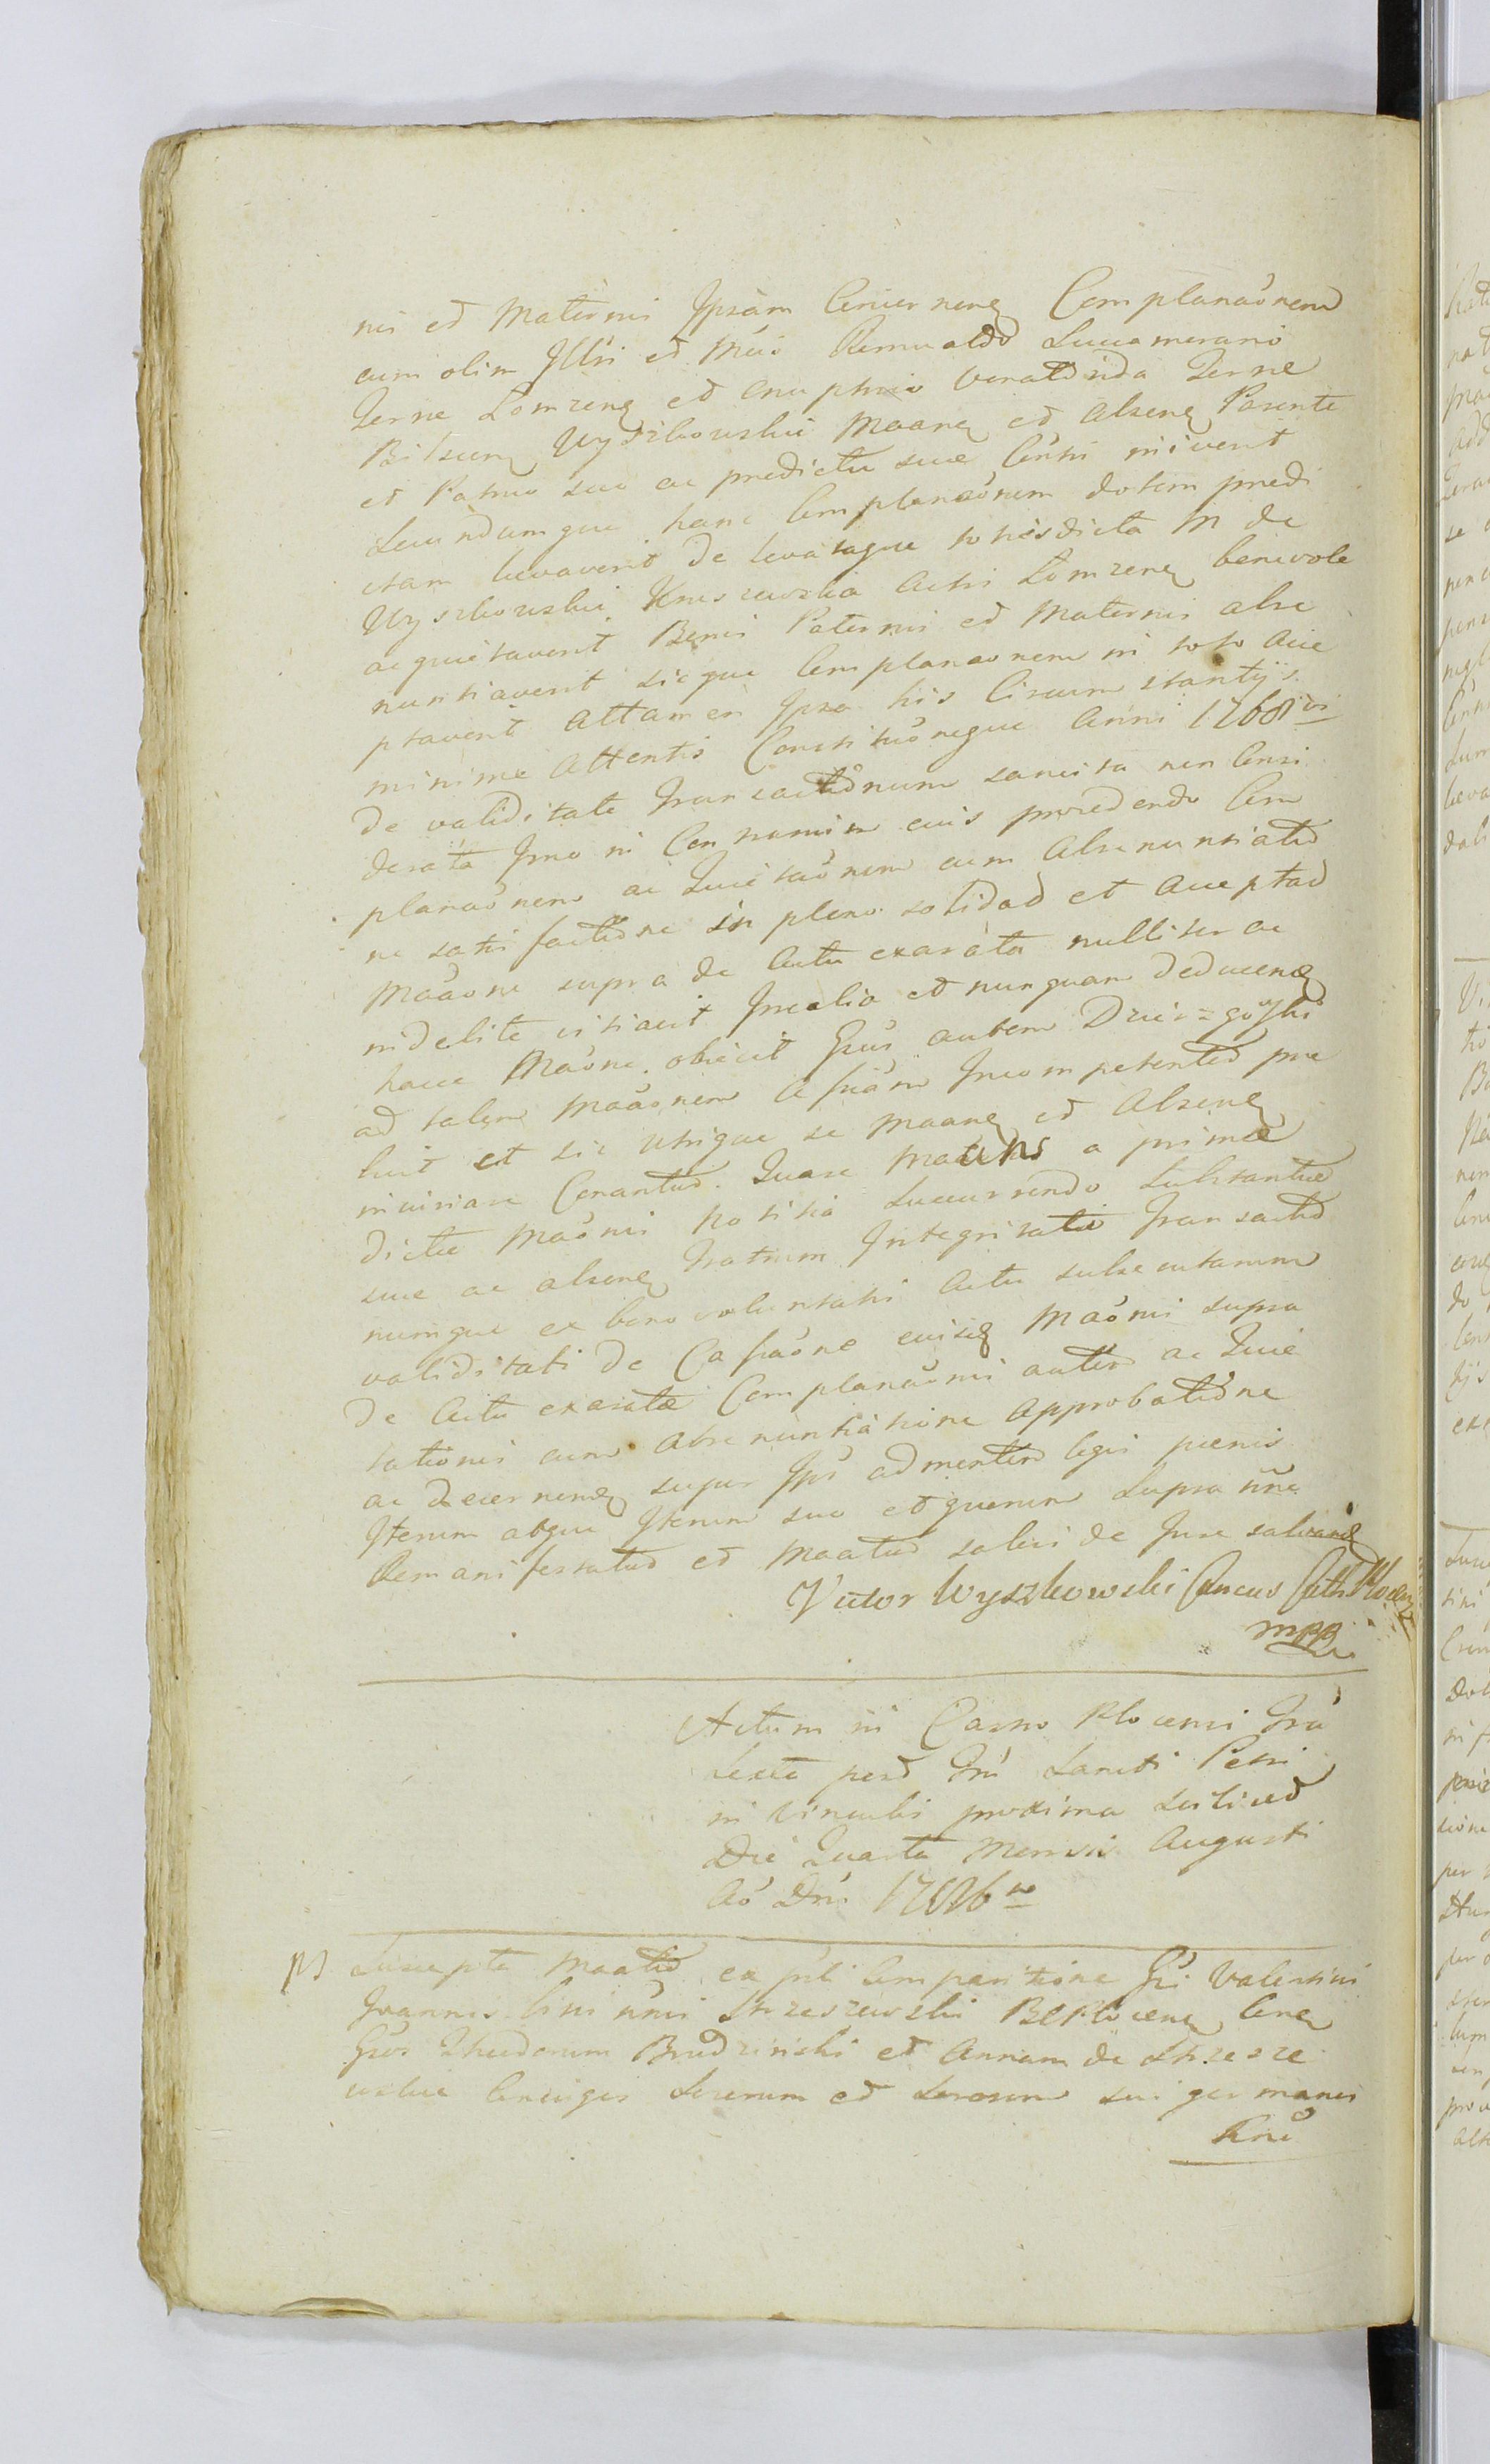 nis et Materni Ipsam Concernenq Complanaónem
cum olim Illri et Mńo Romualdo Succamerario
Terræ Lomzenq et Onuphrio Venatorida Terræ
Bilscenq Wyszkowskie Maanq et absenq Parente
et Patruo suo ac predictæ suæ Conthi iniverit
Secundumque hanc Complanaónem dotem predi
ctam levaverit de levataque totiesdicta M de
Wyszkowskie Kruszewska Actis Lomzenq benevole
acquietaverit Bonis Paternis et Maternis abre
nuntiaverit sicque Complanaonem in toto acce
ptaverit Attamen Ipsa his Circumstantijs
minime Attentis Constituónegue Anni 1768vi
de validitate Transactionum sancita non Consi
derata Imo in Contrarium eius procedendo Com
planaónem ac Quietaónem cum Abrenuntiatio
ne satisfactione in pleno solidat et acceptat
Maaone supra de Actu exarata nulliter ac
indebite vitiavit Incalio et nunquam deducenq
hacce Maóne obiecit Gnus autem Dzierzgoski
ad talem Maaónem Incompetenter præ
buit et sic utrique se Maanq et Absenq
iniuriare Conantur. Quare Maans a prima
dictæ Maónis notitia Succurrendo Substantiæ
suæ ac absenq Fratrum Integritati Transactio
numque ex bona voluntate Actu subsecutarum
validitati de Cassaóne eiusq Maónis supra
de Actu exaratæ Complanaónis autem ac Quie
tationis cum Abrenuntiatione Approbatione
ac decernenq super Ips ad mentem legis pænis
Iterum atque Iterum suo et quorum Supra nne
Remanifestatur et Maatur salvis de Jure salvanq
Victor Wyszkowski Cancus Cath Plocen
mpp
Actum in Castro Plocensi Fra
Sexta post Fm Sancti Petri
in Vinculis proxima scilicet
Die Quarta Mensis Augusti
Aó Dni 1786to
Suscepta Maatio ex psti Comparitione Gsi Valentini
Joannis bini nnis Strzeszewski BGPlocenq Conq
Gsos Theodorum Brudzinski et Annam de Strzesze
wskie Coniuges Sororum et Sororem sui germanos